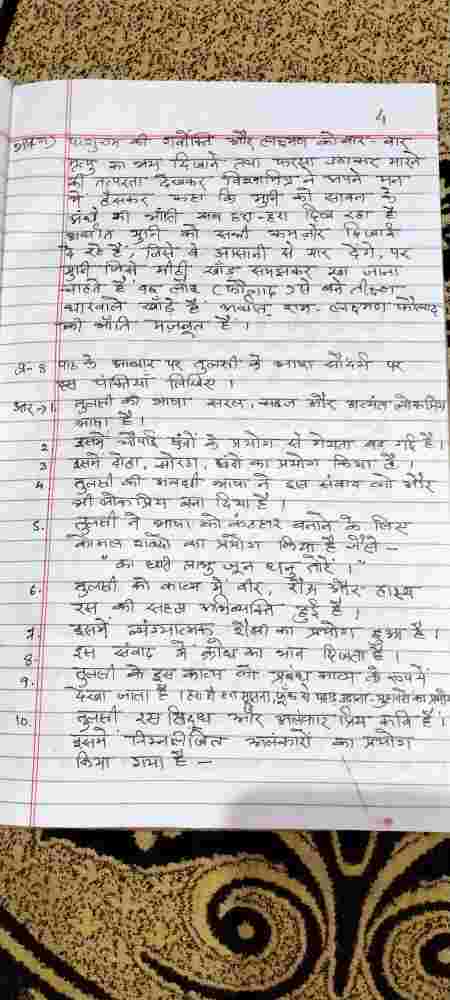 4
परशुराम की गर्वोक्ति और लक्ष्मण को बार-बार
मृत्यु का भय दिखाने तथा फरसा उठाकर मारने
की तत्परता देखकर विश्वामित्र ने अपने मन
में हँसकर कहा कि मुनि को सावन के
की भाँति सब हरा-हरा दिख रहा है
अर्थात मुनि को सभी कमज़ोर दिखाई
दे रहे हैं, जिसे वे आसानी से मार देंगे, पर
मुनि जिसे मीठी खाँड समझकर खा जाना
चाहते हैं वह लौह (फौलाद) से बने तीक्ष्ण
धारवाले खाँडे हैं अर्थात राम-लक्ष्मण फौलाद
की भाँति मज़बूत हैं।
प्र-8 पाठ के आधार पर तुलसी के भाषा सौंदर्य पर
दस पंक्तियाँ लिखिए।
उत्तर→1. तुलसी की भाषा सरल, सहज और अत्यंत लोकप्रिय
भाषा है।
2. इसमें चौपाई छंदों के प्रयोग से गेयता बढ़ गई है।
3. इसमें दोहा, सोरठा, छंदों का प्रयोग किया है।
4. तुलसी की अवधी भाषा ने इस संवाद को और
भी लोकप्रिय बना दिया है।
5. तुलसी ने भाषा को कंठहार बनाने के लिए
कोमल शब्दों का प्रयोग किया है जैसे -
"का छति लाभु जून धनु तोरें।"
6. तुलसी के काव्य में वीर, रौद्र और हास्य
रस की सहज अभिव्यक्ति हुई है।
7. इसमें व्यंग्यात्मक शैली का प्रयोग हुआ है।
8. इस संवाद में क्रोध का भाव दिखता है।
9. तुलसी के इस काव्य को प्रबंध काव्य के रूप में
देखा जाता है।
10. तुलसी रस सिद्ध और अलंकार प्रिय कवि हैं।
इसमें निम्नलिखित अलंकारों का प्रयोग
किया गया है -